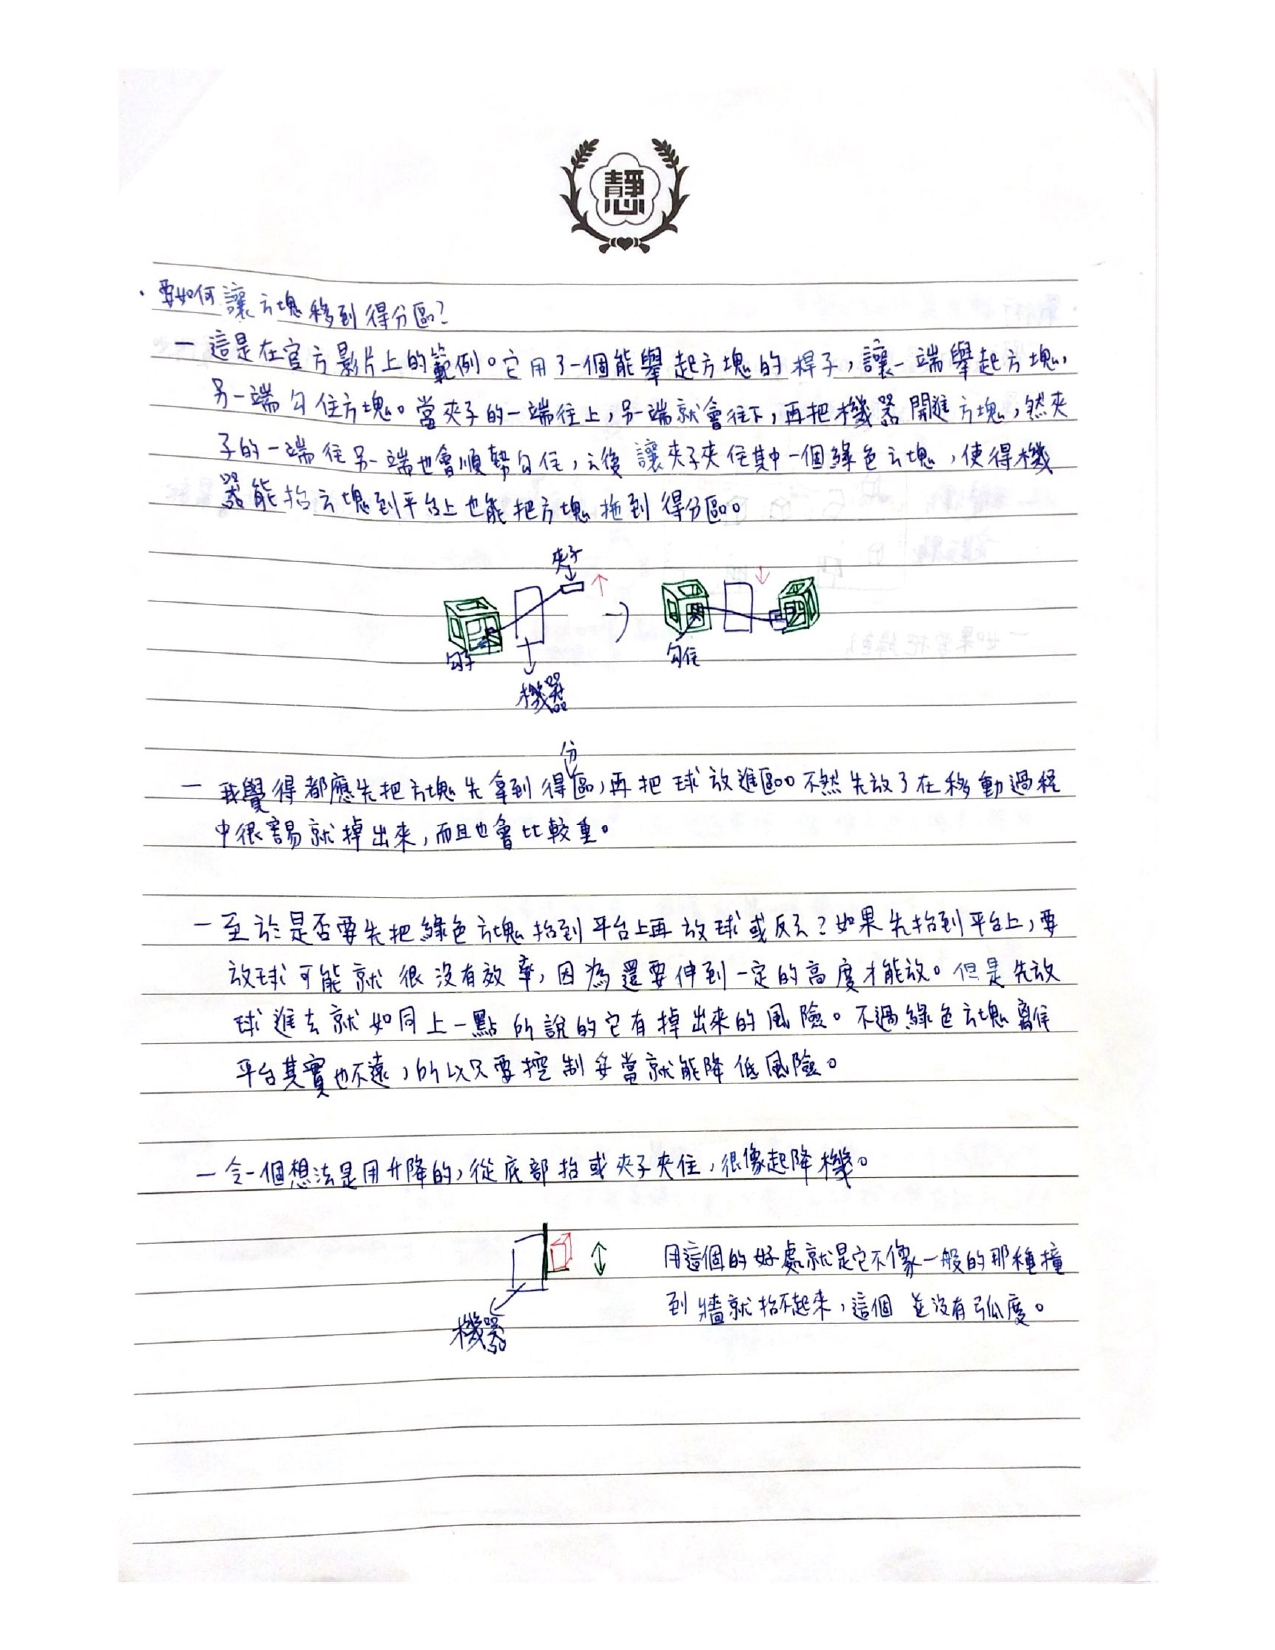 靜思
・要如何讓方塊移到得分區?
一 這是在官方影片上的範例。它用了一個能舉起方塊的桿子,讓一端舉起方塊,
另一端勾住方塊。當夾子的一端往上,另一端就會往下,再把機器開進方塊,然夾
子的一端往另一端也會順勢勾住,之後讓夾子夾住其中一個綠色方塊,使得機
器能抬方塊到平台上也能把方塊拖到得分區。
夾子
勾子
勾住
機器
分
一 我覺得都應先把方塊先拿到得區,再把球放進區。不然先放了在移動過程
中很容易就掉出來,而且也會比較重。
一 至於是否要先把綠色方塊抬到平台上再放球或反之?如果先抬到平台上,要
放球可能就很沒有效率,因為還要伸到一定的高度才能放。但是先放
球進去就如同上一點所說的它有掉出來的風險。不過綠色方塊離
平台其實也不遠,所以只要控制妥當就能降低風險。
一 令一個想法是用升降的,從底部抬或夾子夾住,很像起降機。
用這個的好處就是它不像一般的那種撞
到牆就抬不起來,這個並沒有弧度。
機器